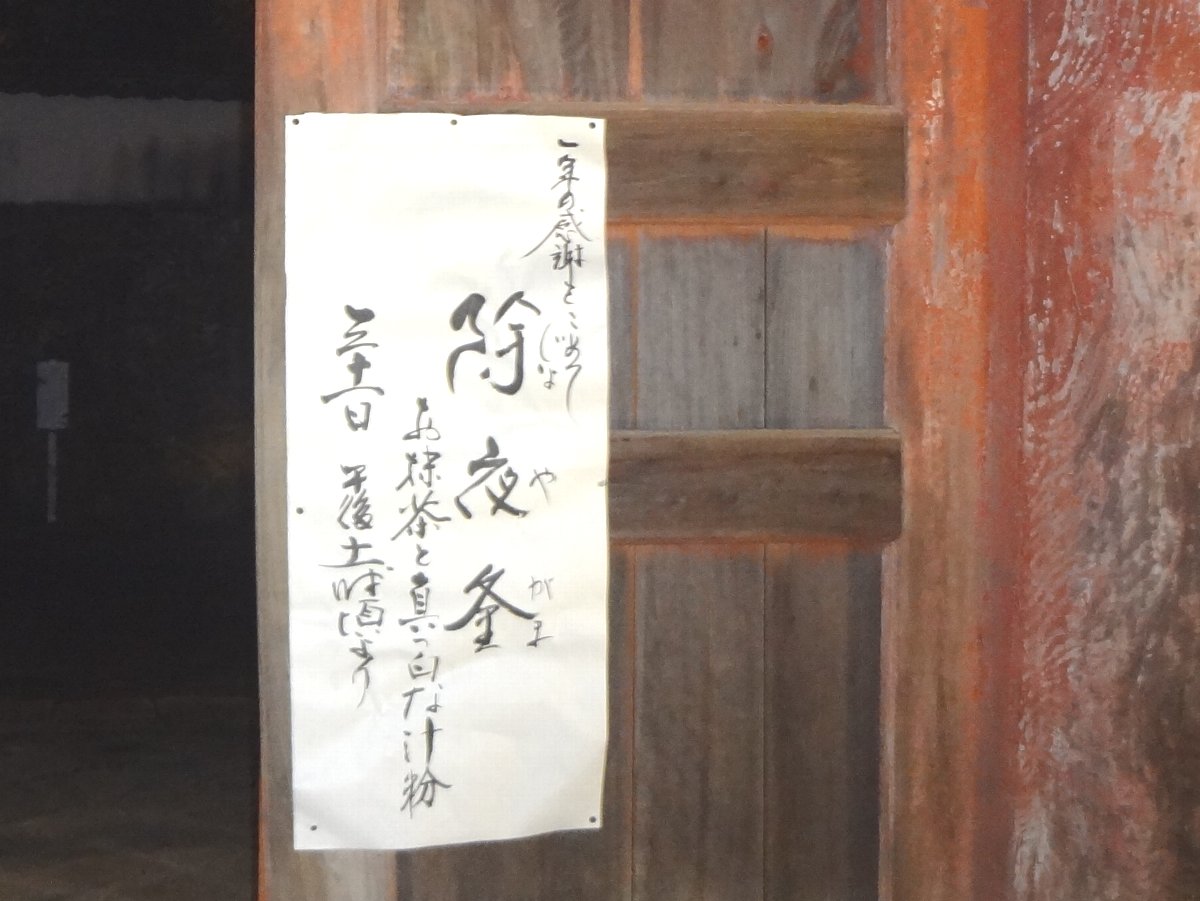 一年の感謝をこめて
除夜釜
じょやがま
お抹茶と真っ白な汁粉
三十一日 午後十一時頃より